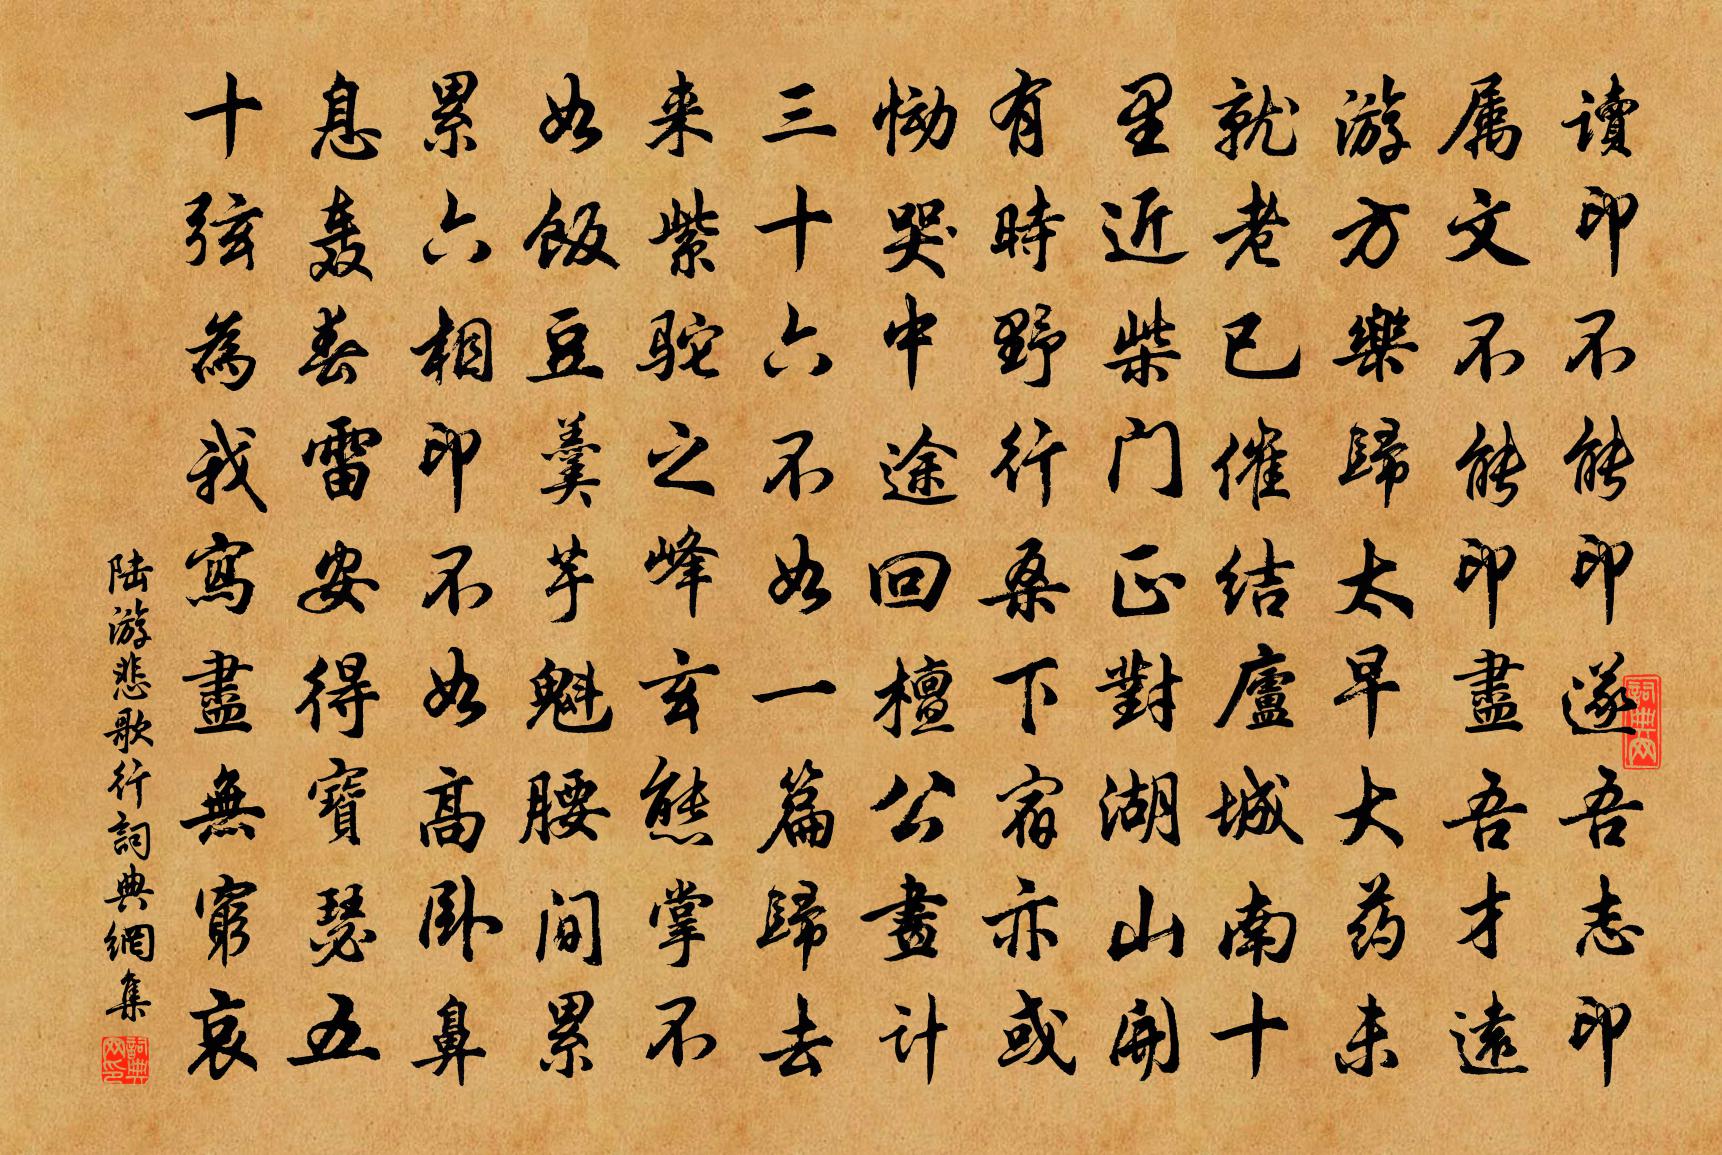 讀印不能印遂吾志印
属文不能印盡吾才遠
游方樂歸太早大药未
就老已催结廬城南十
里近柴门正對湖山開
有時野行桑下宿亦或
恸哭中途回檀公畫计
三十六不如一篇歸去
来紫駝之峰玄熊掌不
如飯豆羹芋魁腰间累
累六相印不如高卧鼻
息轰春雷安得寶瑟五
十弦為我寫盡無窮哀
陆游悲歌行詞典網集
詞典网
詞典网印